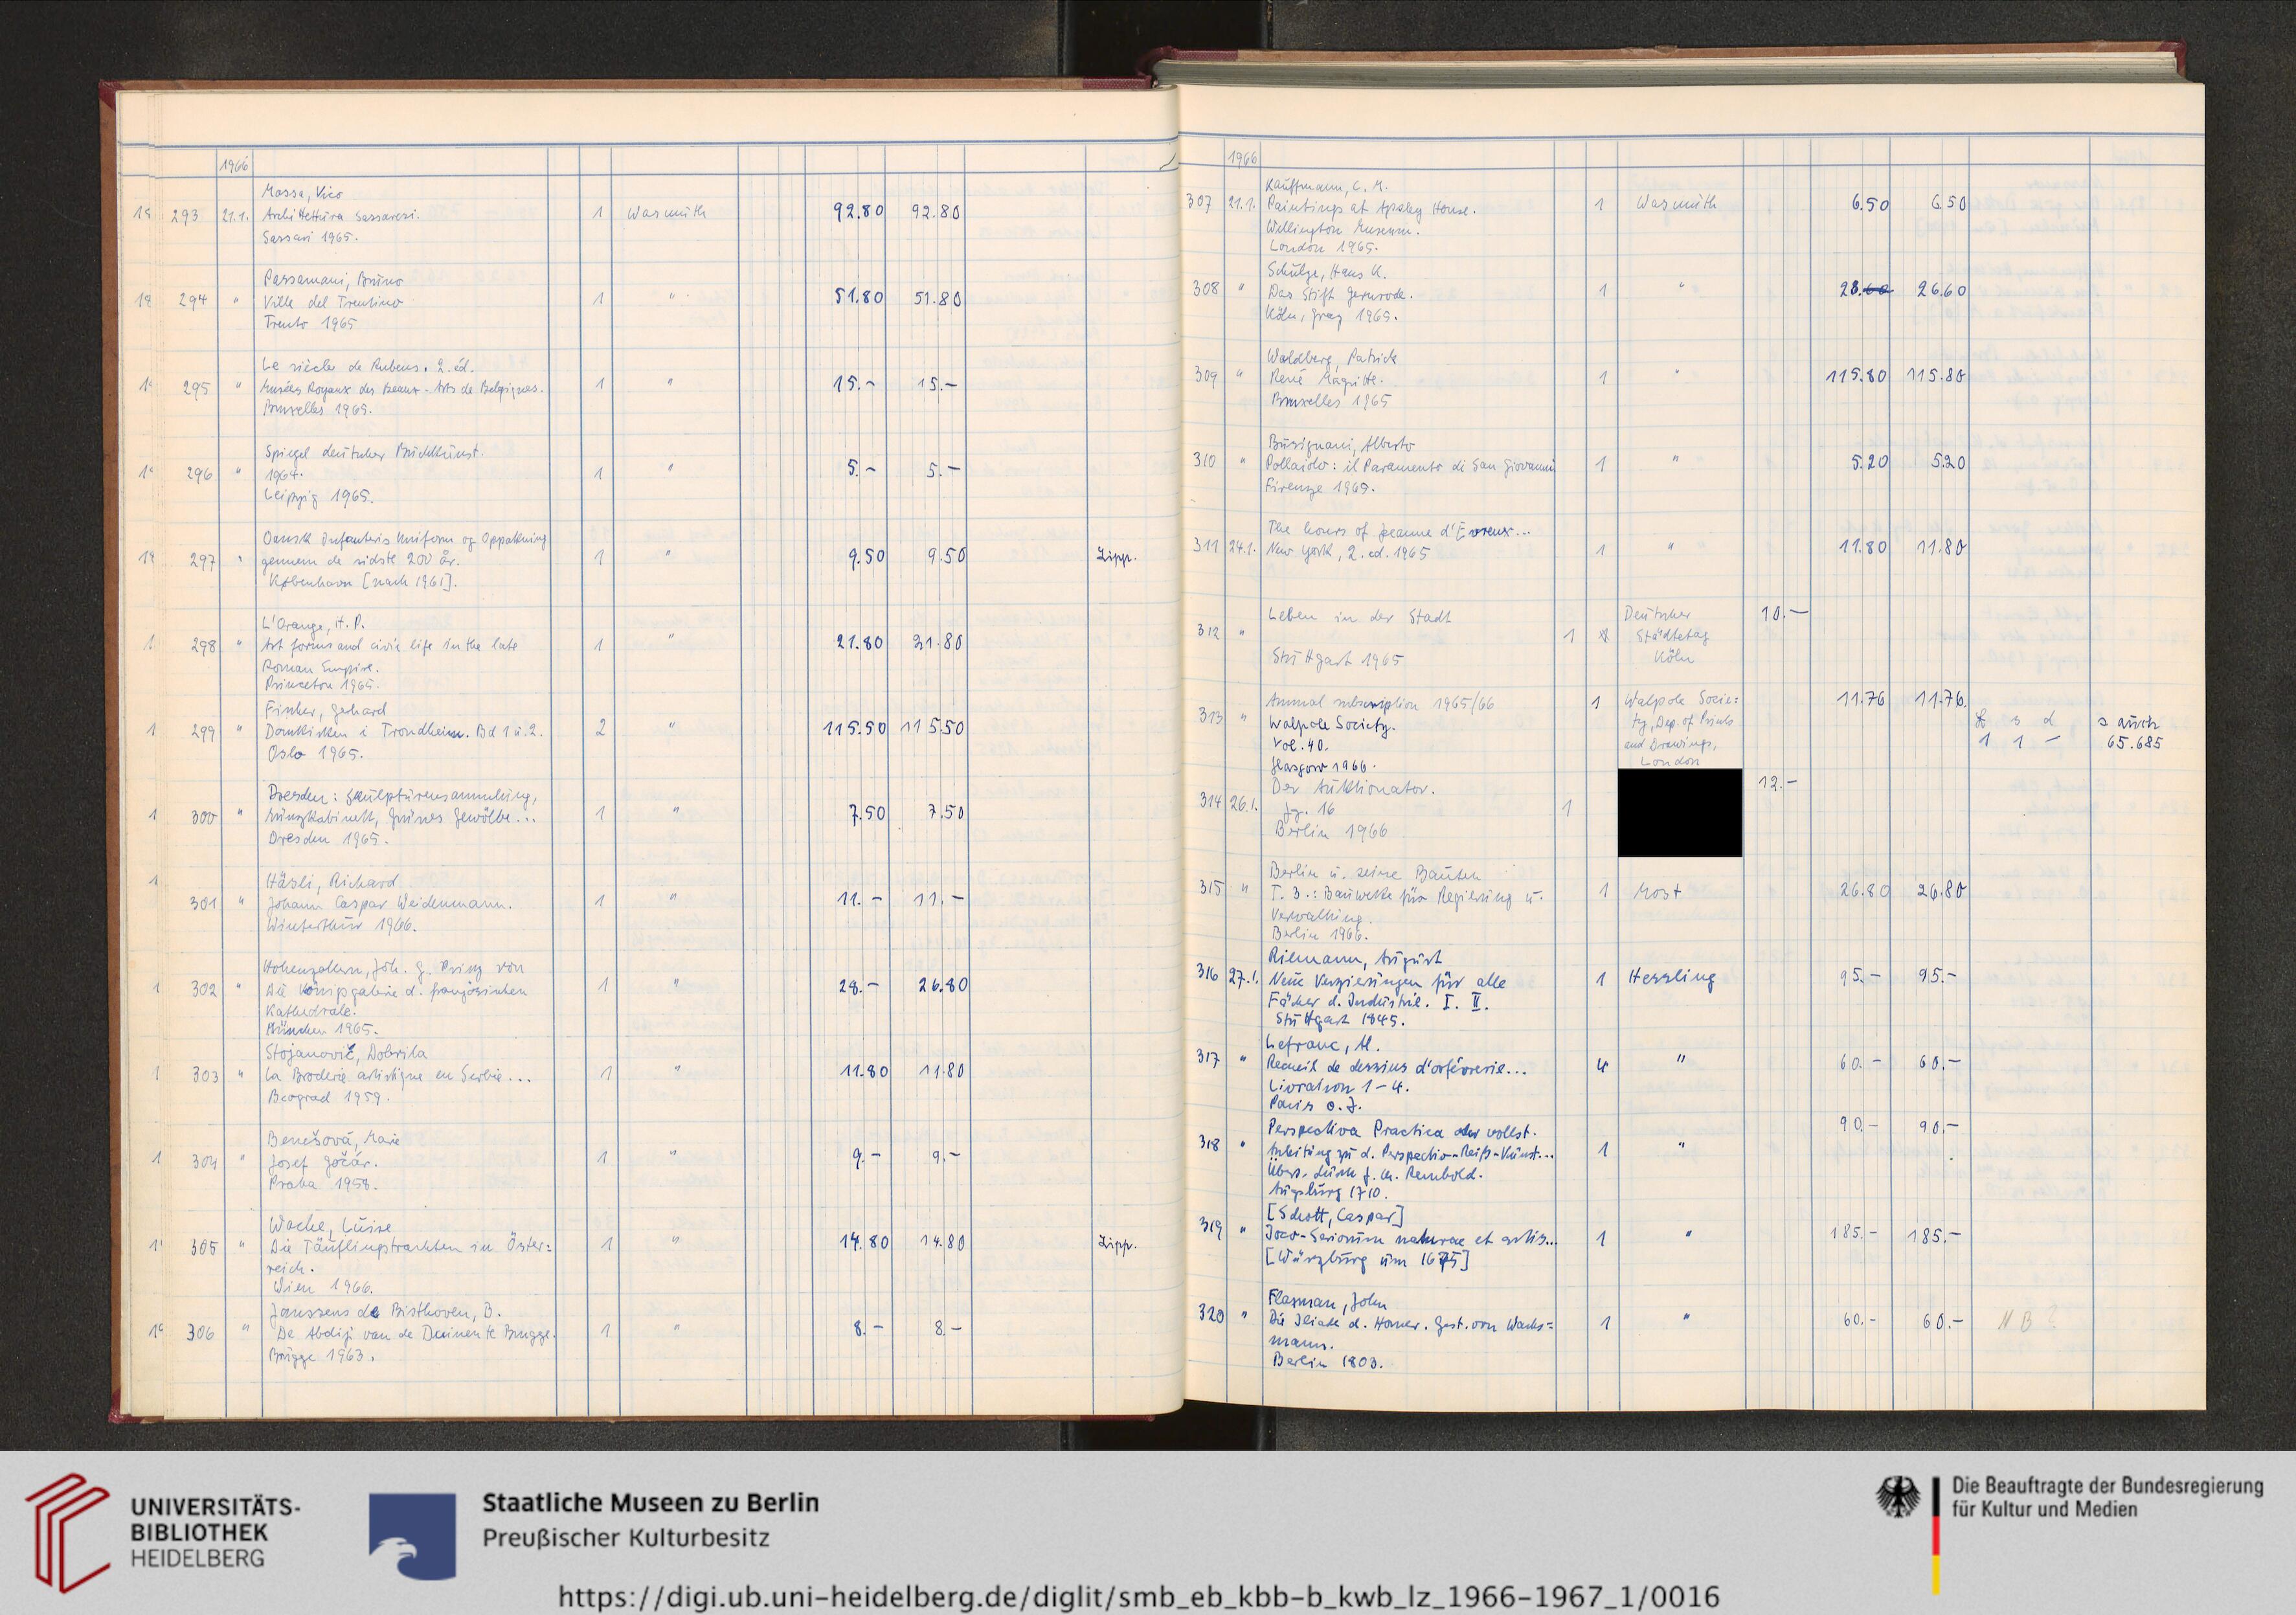 1966
Massa, Vico
293 21.1. Architettura Sassaresi. 1 Wasmuth 92.80 92.80
Sassari 1965.
Passamani, Bruno
294 " Ville del Trentino 1 " 51.80 51.80
Trento 1965
Le siècle de Rubens. 2. éd.
295 " Musées Royaux des Beaux-Arts de Belgiques. 1 " 15.- 15.-
Bruxelles 1965.
Spiegel deutscher Buchkunst.
296 " 1964. 1 " 5.- 5.-
Leipzig 1965.
Dansk Infanteris Uniform og Oppakning
297 " gennem de sidste 200 år. 1 " 9.50 9.50 Lipp.
København [nach 1961].
L'Orange, H. P.
298 " Art forms and civic life in the late 1 " 21.80 21.80
Roman Empire.
Princeton 1965.
Fischer, Gerhard
1 299 " Domkirken i Trondheim. Bd 1 u. 2. 2 " 115.50 115.50
Oslo 1965.
Dresden: Skulpturensammlung,
1 300 " Münzkabinett, Grünes Gewölbe... 1 " 7.50 7.50
Dresden 1965.
1 Häsli, Richard
301 " Johann Caspar Weidenmann. 1 " 11.- 11.-
Winterthur 1966.
Hohenzollern, Joh. G. Prinz von
1 302 " Die Königsgalerie d. französischen 1 " 28.- 26.80
Kathedrale.
München 1965.
Stojanović, Dobrila
1 303 " La Broderie artistique en Serbie... 1 " 11.80 11.80
Beograd 1959.
Benešová, Marie
1 304 " Josef Gočár. 1 " 9.- 9.-
Praha 1958.
Wache, Luise
305 " Die Täuflingstrachten in Öster= 1 " 14.80 14.80 Lipp.
reich.
Wien 1966.
Janssens de Bisthoven, B.
306 " De Abdij van de Duinen te Brugge. 1 " 8.- 8.-
Brugge 1963.
1966
Kauffmann, C. M.
307 21.1. Paintings at Apsley House. 1 Wasmuth 6.50 6.50
Wellington Museum.
London 1965.
Schulze, Hans K.
308 " Das Stift Gernrode. 1 " 28.60 26.60
Köln, Graz 1965.
Waldberg, Patrick
309 " René Magritte. 1 " 115.80 115.80
Bruxelles 1965
Busignani, Alberto
310 " Pollaiolo: il Paramento di San Giovanni 1 " 5.20 5.20
Firenze 1965.
The hours of Jeanne d'Evreux...
311 24.1. New York, 2. ed. 1965 1 " 11.80 11.80
Leben in der Stadt Deutscher 10.-
312 " 1 Städtetag
Stuttgart 1965 Köln
Annual subscription 1965/66 1 Walpole Socie= 11.76 11.76
313 " Walpole Society. ty, Dep. of Prints £ s d s. auch
Vol. 40. and Drawings, 1 1 - 65.685
Glasgow 1966. London
Der Auktionator. 12.-
314 26.1. Jg. 16 1
Berlin 1966
Berlin u. seine Bauten
315 " T. 3.: Bauwerke für Regierung u. 1 Most 26.80 26.80
Verwaltung.
Berlin 1966.
Riemann, August
316 27.1. Neue Verzierungen für alle 1 Hessling 95.- 95.-
Fächer d. Industrie. I. II.
Stuttgart 1845.
Lefranc, M.
317 " Recueil de dessins d'orfèvrerie... 4 " 60.- 60.-
Livraison 1-4.
Paris o. J.
Perspectiva Practica oder vollst. 90.- 90.-
318 " Anleitung zu d. Perspectiv-Reiß-Kunst... 1 "
Übers. durch J. Ch. Rembold.
Augsburg 1710.
[Schott, Caspar]
319 " Joco-Seriorum naturae et artis... 1 " 185.- 185.-
[Würzburg um 1675]
Flaxman, John
320 " Die Iliade d. Homer. Gest. von Wachs= 1 " 60.- 60.- NB?
mann.
Berlin 1803.
UNIVERSITÄTS-
BIBLIOTHEK
HEIDELBERG
Staatliche Museen zu Berlin
Preußischer Kulturbesitz
Die Beauftragte der Bundesregierung
für Kultur und Medien
https://digi.ub.uni-heidelberg.de/diglit/smb_eb_kbb-b_kwb_lz_1966-1967_1/0016